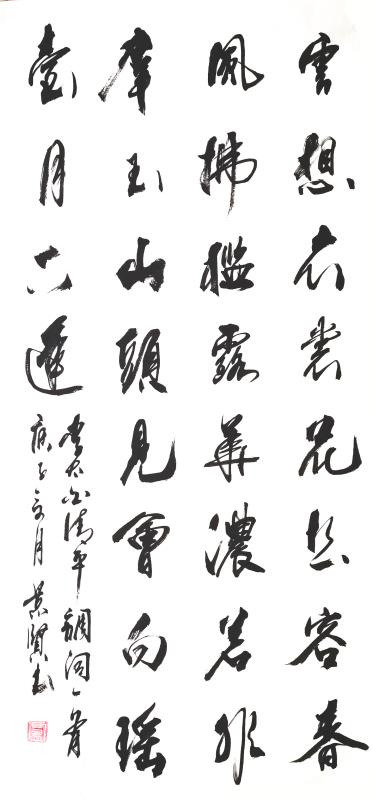 雲想衣裳花想容春
風拂檻露華濃若非
羣玉山頭見會向瑤
臺月下逢
李太白清平調詞一首
庚子 月 景賢書